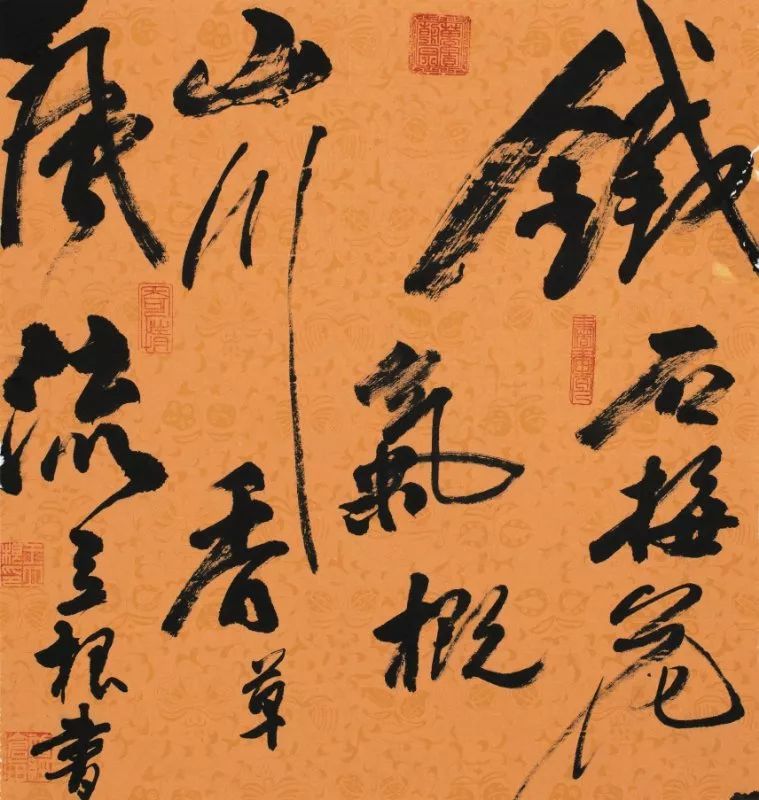 鐵石梅花
氣概
山川香草
風流
立根書